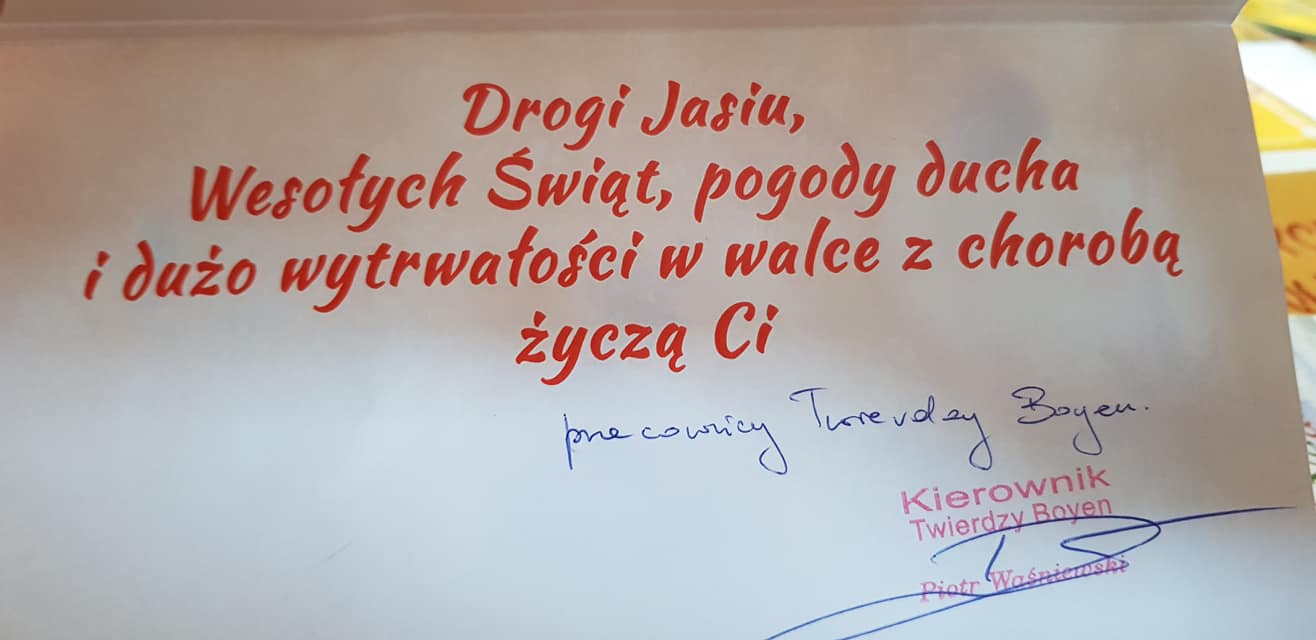 Drogi Jasiu,
Wesołych Świąt, pogody ducha
i dużo wytrwałości w walce z chorobą
życzą Ci
pracownicy Twierdzy Boyen.
Kierownik
Twierdzy Boyen
Piotr Waśniewski